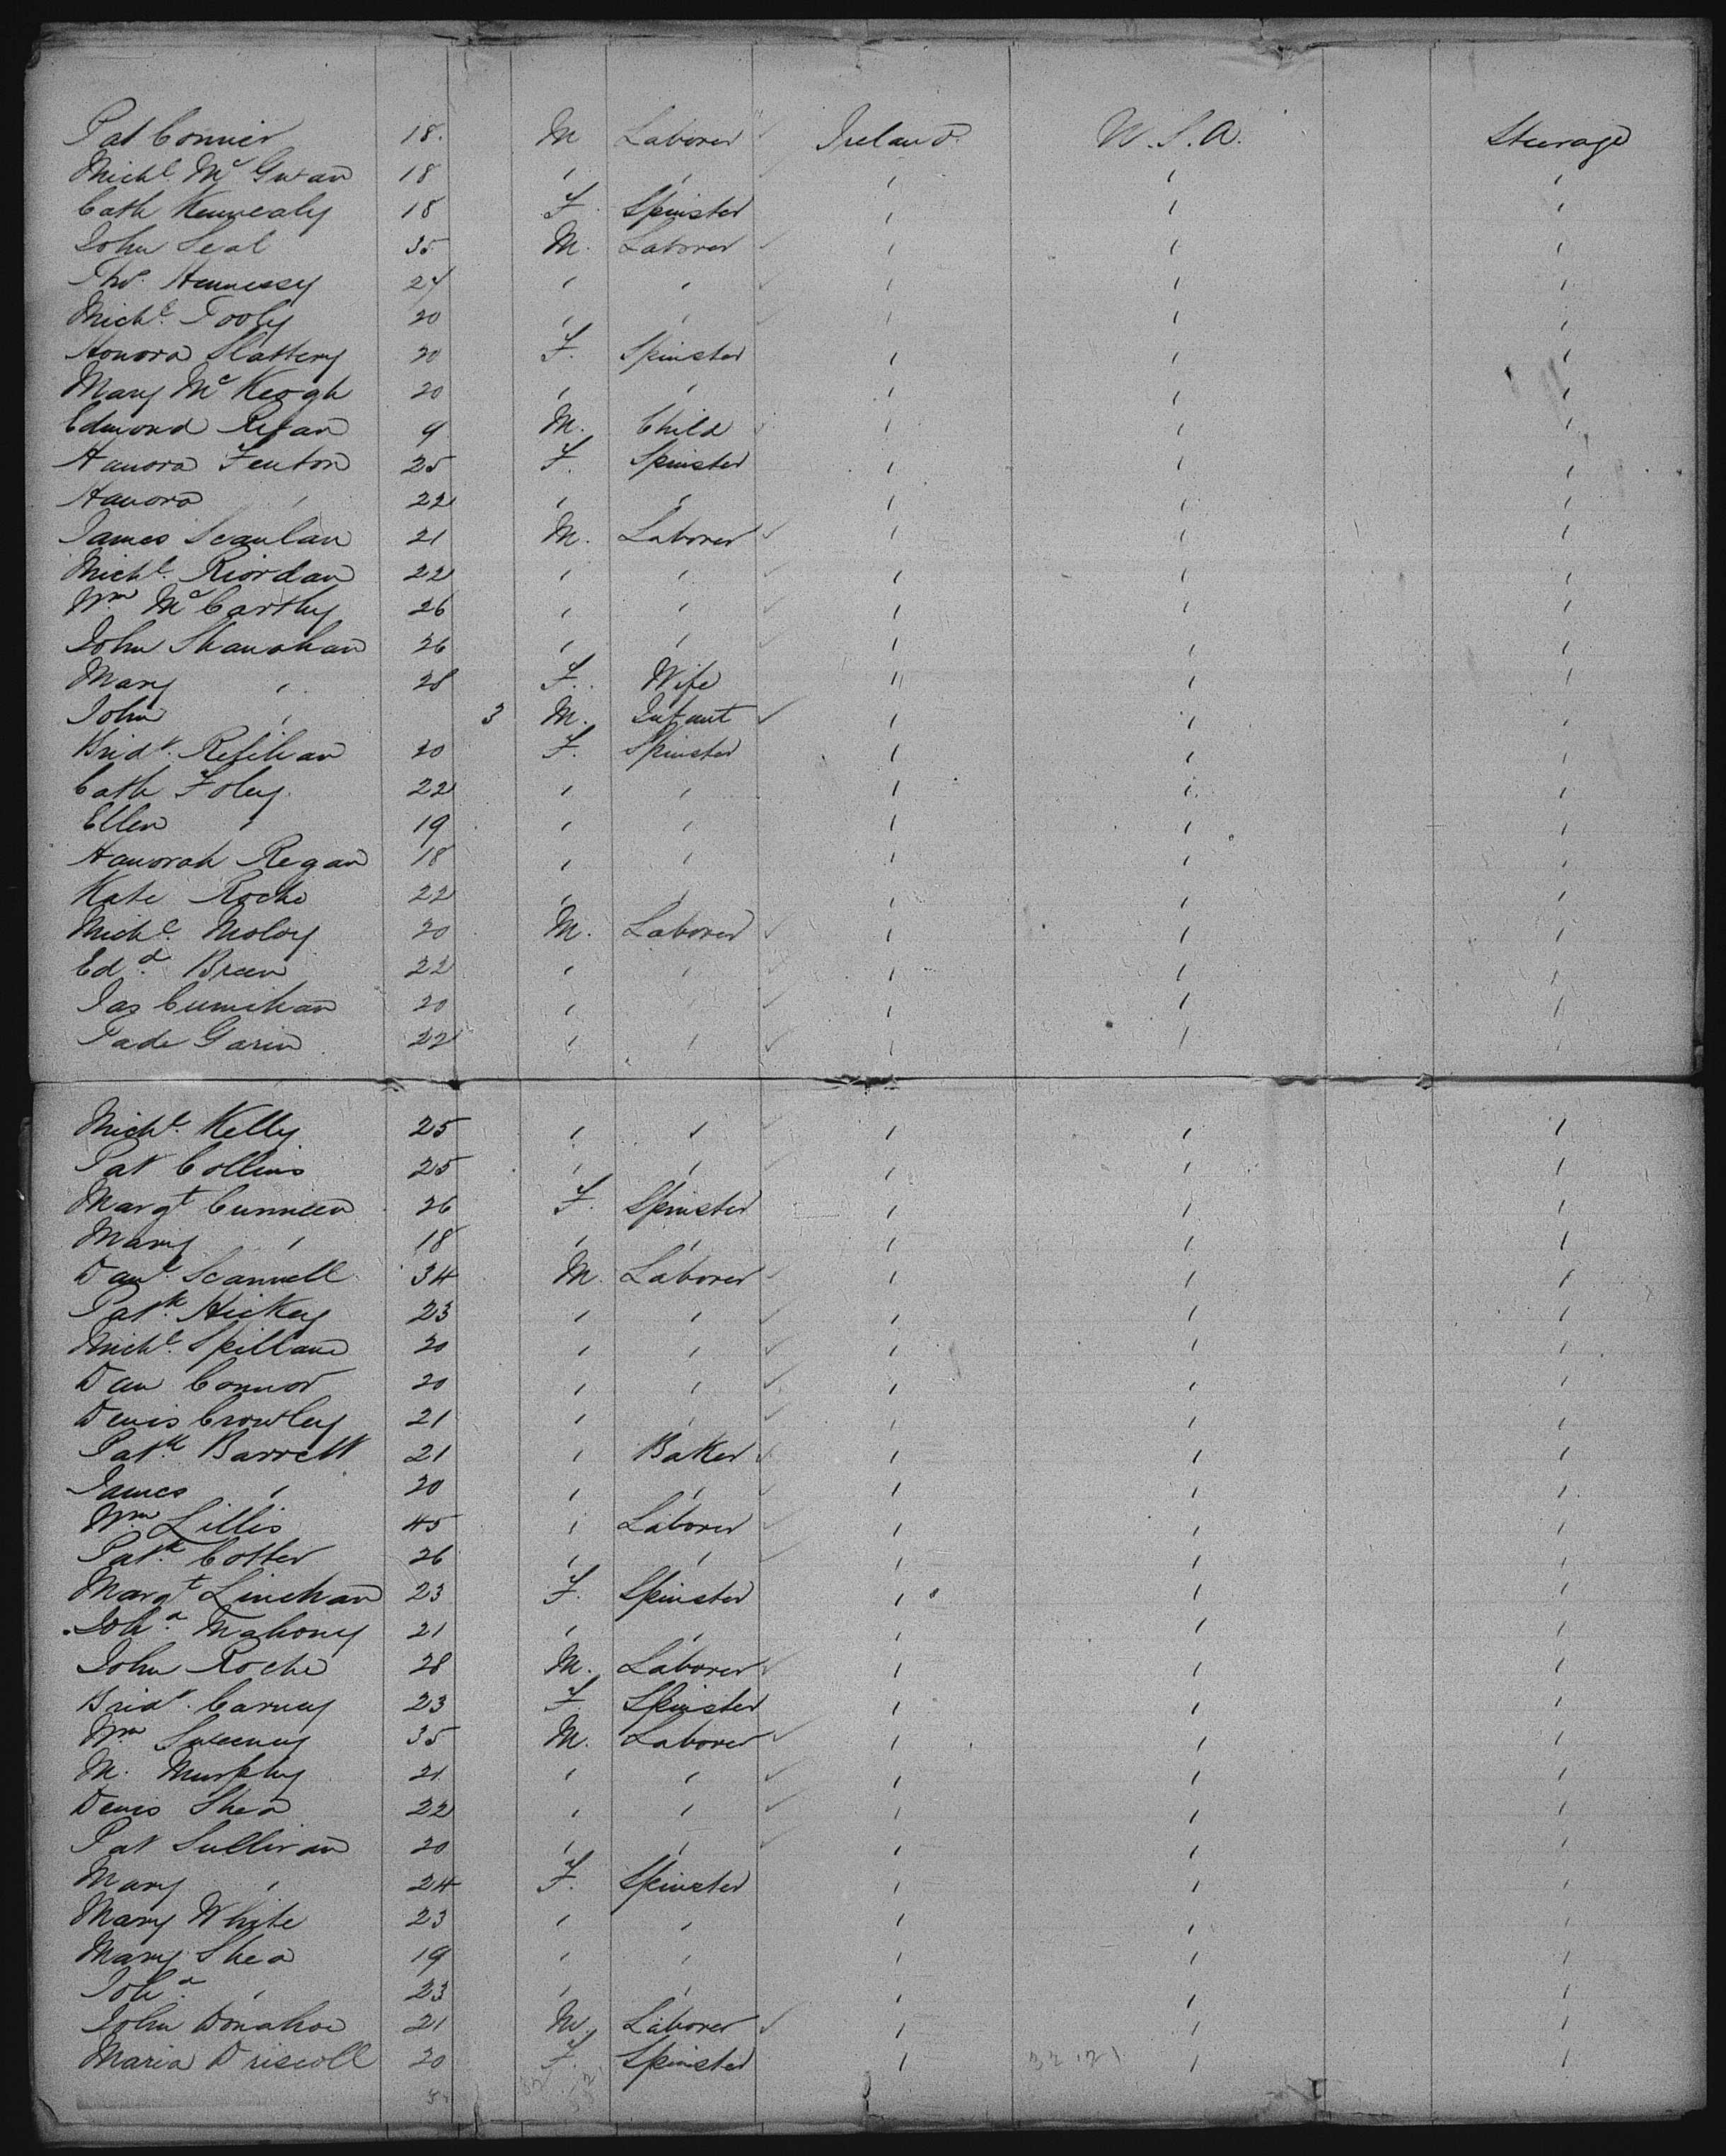 Pat Connier 18. M Laborer Ireland. U.S.A. Steerage
Michl. Mc Gwan 18 " " " " "
Cath Kennealy 18 F. Spinster " " "
John Seal 35 M. Laborer " " "
Tho. Hennessy 24 " " " " "
Michl. Tooly 20 " " " " "
Honora Slattery 20 F. Spinster " " "
Mary Mc Keogh 20 " " " " "
Edmond Regan 9 M. Child " " "
Hanora Fenton 25 F. Spinster " " "
Hanora " 22 " " " " "
James Scanlan 21 M. Laborer " " "
Michl. Riordan 22 " " " " "
Wm Mc Carthy 26 " " " " "
John Shanahan 26 " " " " "
Mary " 28 F. Wife " " "
John " 3 M. Infant " " "
Bridt. 20 F. Spinster " " "
Cath Foley 22 " " " " "
Ellen " 19 " " " " "
Hanorah Regan 18 " " " " "
Kate Roche 22 " " " " "
Michl. Moloy 20 M. Laborer " " "
Edd. Breen 22 " " " " "
Jas Cumihan 20 " " " " "
Pade Garin 22 " " " " "
Michl. Kelly 25 " " " " "
Pat Collins 25 " " " " "
Margt Cunneen 26 F. Spinster " " "
Mary " 18 " " " " "
Danl. Scannell 34 M. Laborer " " "
Patk. Hickey 23 " " " " "
Michl. Spillane 20 " " " " "
Dan Connor 20 " " " " "
Denis Crowley 21 " " " " "
Patk. Barrett 21 " Baker " " "
James " 20 " " " " "
Wm Lillis 45 " Laborer " " "
Patk. Cotter 26 " " " " "
Margt Linehan 23 F. Spinster " " "
Joha. Mahony 21 " " " " "
John Roche 28 M. Laborer " " "
Bridt. Carney 23 F. Spinster " " "
Wm Sweeney 35 M. Laborer " " "
M. Murphy 21 " " " " "
Denis Shea 22 " " " " "
Pat Sullivan 20 " " " " "
Mary " 24 F. Spinster " " "
Mary White 23 " " " " "
Mary Shea 19 " " " " "
Joha. " 23 " " " " "
John Donahoe 21 M. Laborer " " "
Maria Driscoll 20 F. Spinster " " "